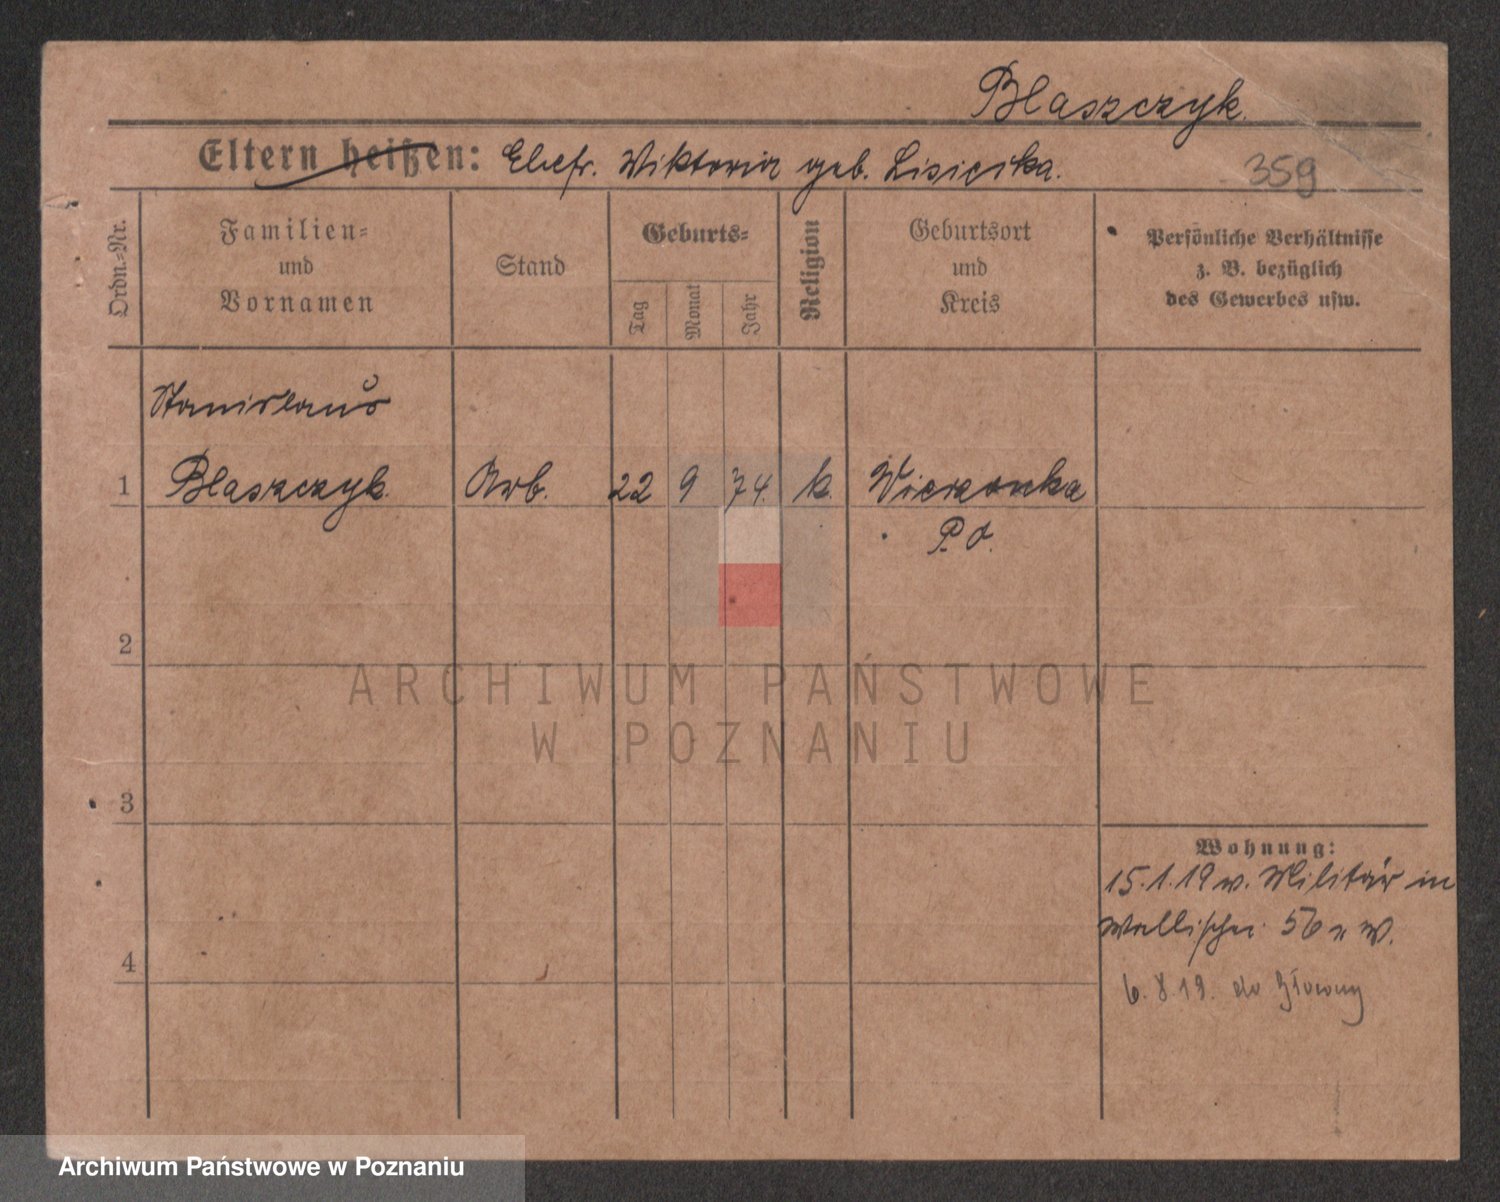 Blaszczyk.
Eltern heißen: Ehefr. Wiktoria geb. Lisiecka.
359
Ordn.-Nr.
Familien-
und
Vornamen
Stand
Geburts-
Tag
Monat
Jahr
Religion
Geburtsort
und
Kreis
Persönliche Verhältnisse
z. B. bezüglich
des Gewerbes usw.
Stanislaus
1 Blaszczyk. Arb. 22 9 74. k. Wierzonka
P. O.
2
3
4
Wohnung:
15.1.19 v. Militär in
Wallischei 56 n W.
6.8.19. do Główny
ARCHIWUM PAŃSTWOWE
W POZNANIU
Archiwum Państwowe w Poznaniu